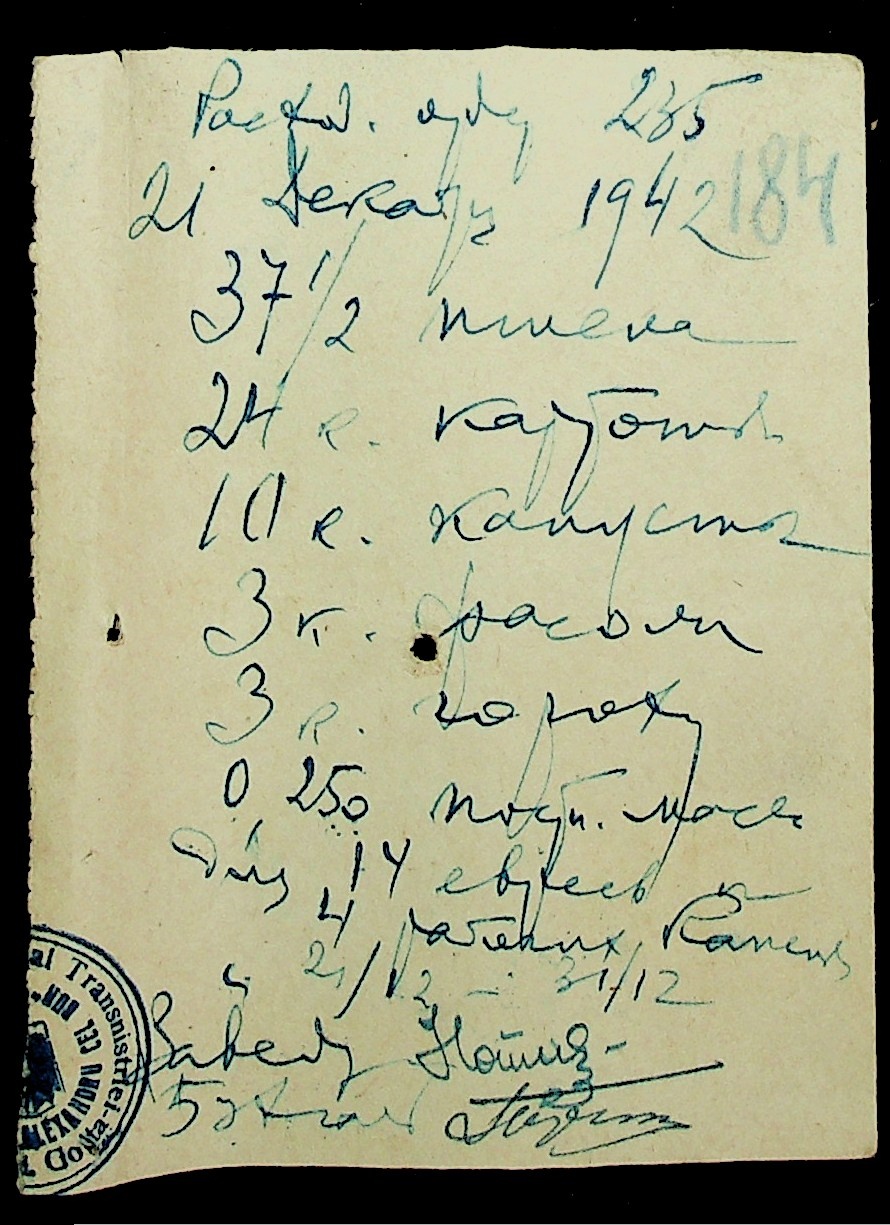 Расход. ордер 235
21 Декабря 1942
184
37 1/2 пшена
24 к. картошк
10 к. капусты
3 к. фасоли
3 к. гороху
0,250 подсл. масл
Для 14 евреев
4 рабочих
21/12 – 31/12
Завед
Бухгал
al Transnistriei
ALEXANDRU CEL BUN
Golta